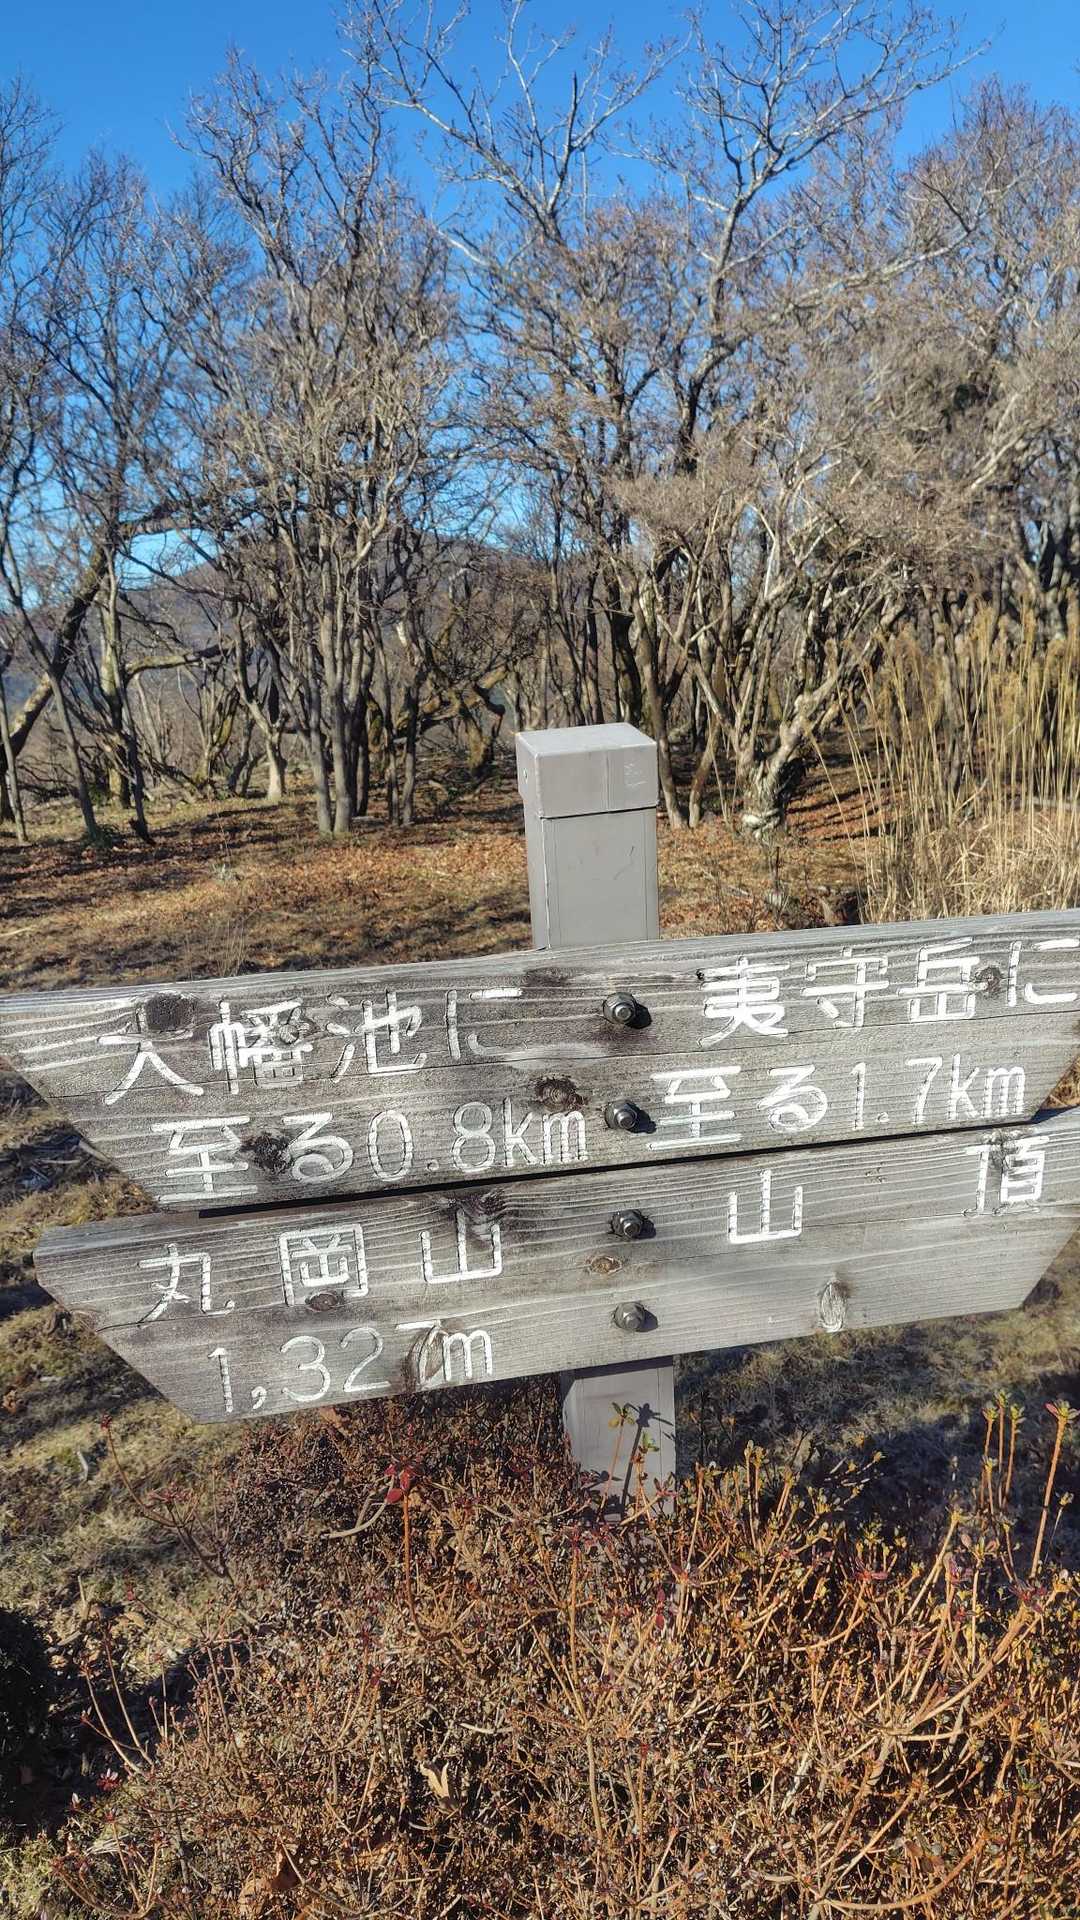 大幡池に
至る0.8km
夷守岳に
至る1.7km
丸岡山山頂
1,327m